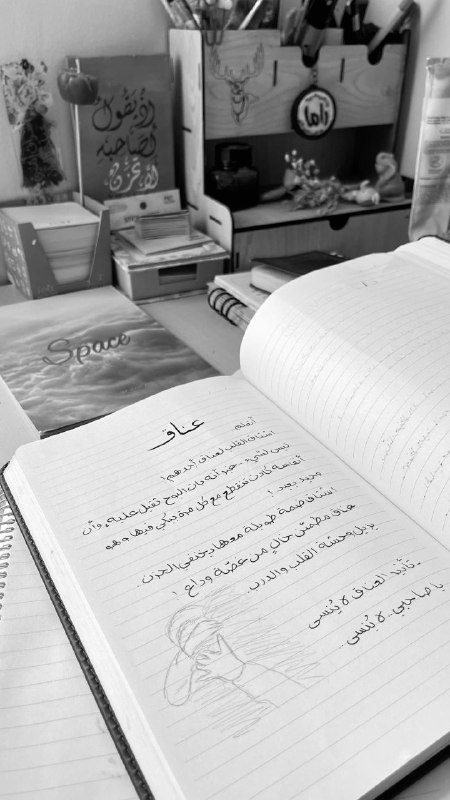 إذ يقول
لصاحبه
لا تحزن
راما
Space
عناق
أتعلم
اشتاق القلب لعناق أحدهم !
ليس لشيء .. أنه بات النوم ثقيل عليه ، وأن
أنفاسه كانت تتقطع مع كل مرة يبكي فيها و هو
وحيد بعيد !
اشتاق ضمة طويلة معها يختفي الحزن
عناق مطمئن خالٍ من غصّة وداع !
يزيل وحشة القلب والدرب .
العناق لا يُنسى
يا صاحبي .. لا يُنسى ..